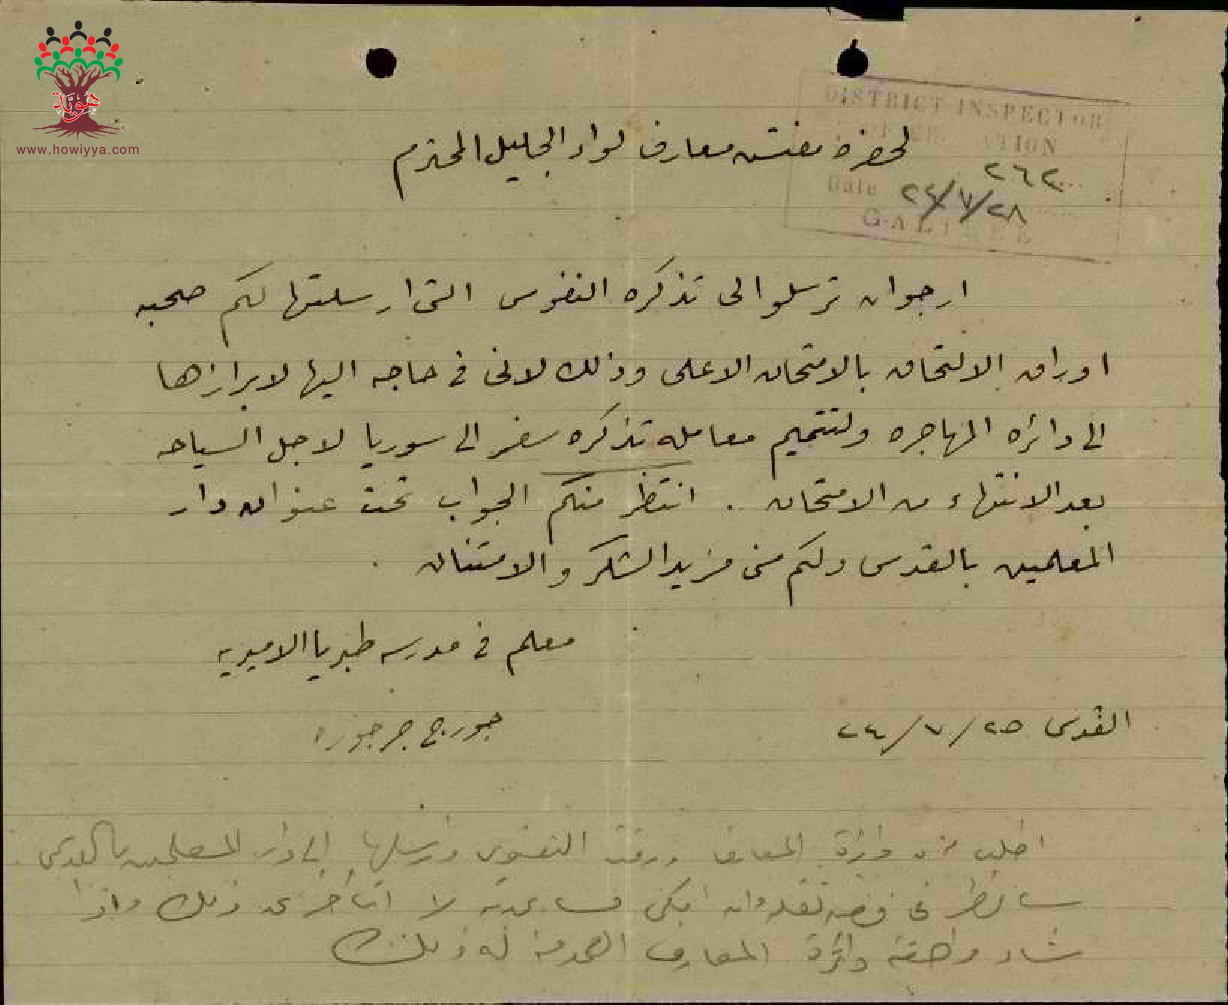 هوية
www.howiyya.com
DISTRICT INSPECTOR
Date
GALILEE
٢٦٢
٢٤/٧/٢٨
لحضرة مفتش معارف لواء الجليل المحترم
ارجو ان ترسلوا لي تذكره النفوس التي ارسلتها لكم صحبه
اوراق الالتحاق بالامتحان الاعلى وذلك لاني في حاجه اليها لابرازها
الى دائره المهاجره ولتتميم معامله تذكره سفر الى سوريا لاجل السياحه
بعد الانتهاء من الامتحان . انتظر منكم الجواب تحت عنوان دار
المعلمين بالقدس ولكم مني مزيد الشكر والامتنان .
معلم في مدرسه طبريا الاميريه
جورج جرجوره
القدس ٢٥/٧/٢٤
اطلب من دائرة المعارف ورقة النفوس وارسلها الى دار المعلمين بالقدس
لا اتأخر عن ذلك واذا
دائرة المعارف